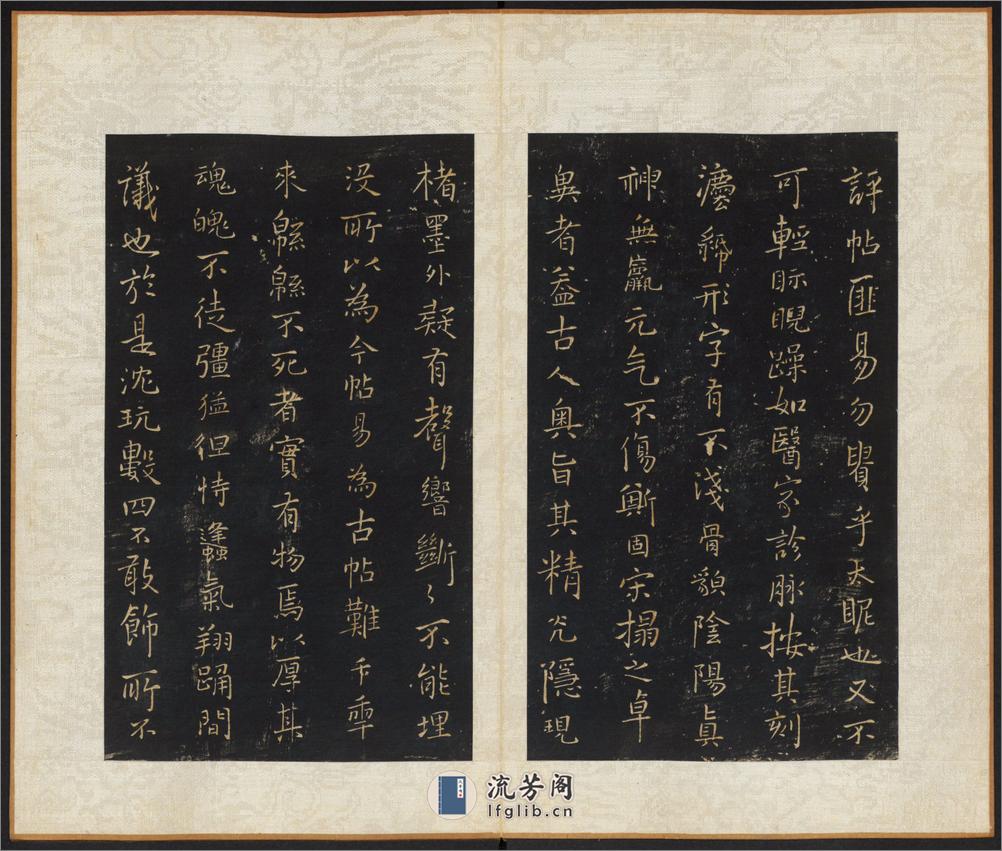 評帖匪易勿貴乎天眼也又不
可輕眎睨躁如醫家診脉按其刻
濩稀形字有不淺骨貌陰陽眞
神無羸元气不傷斵固宋搨之卓
臭者益古人奧旨其精光隱現
楮墨外疑有聲響斷〻不能埋
没所以為今帖易為古帖難千秊
來緜緜不死者實有物焉以厚其
魂魄不徒彊猛但恃蠭氣翔踊間
議也於是沈玩數四不敢飾所不
流芳阁
lfglib.cn